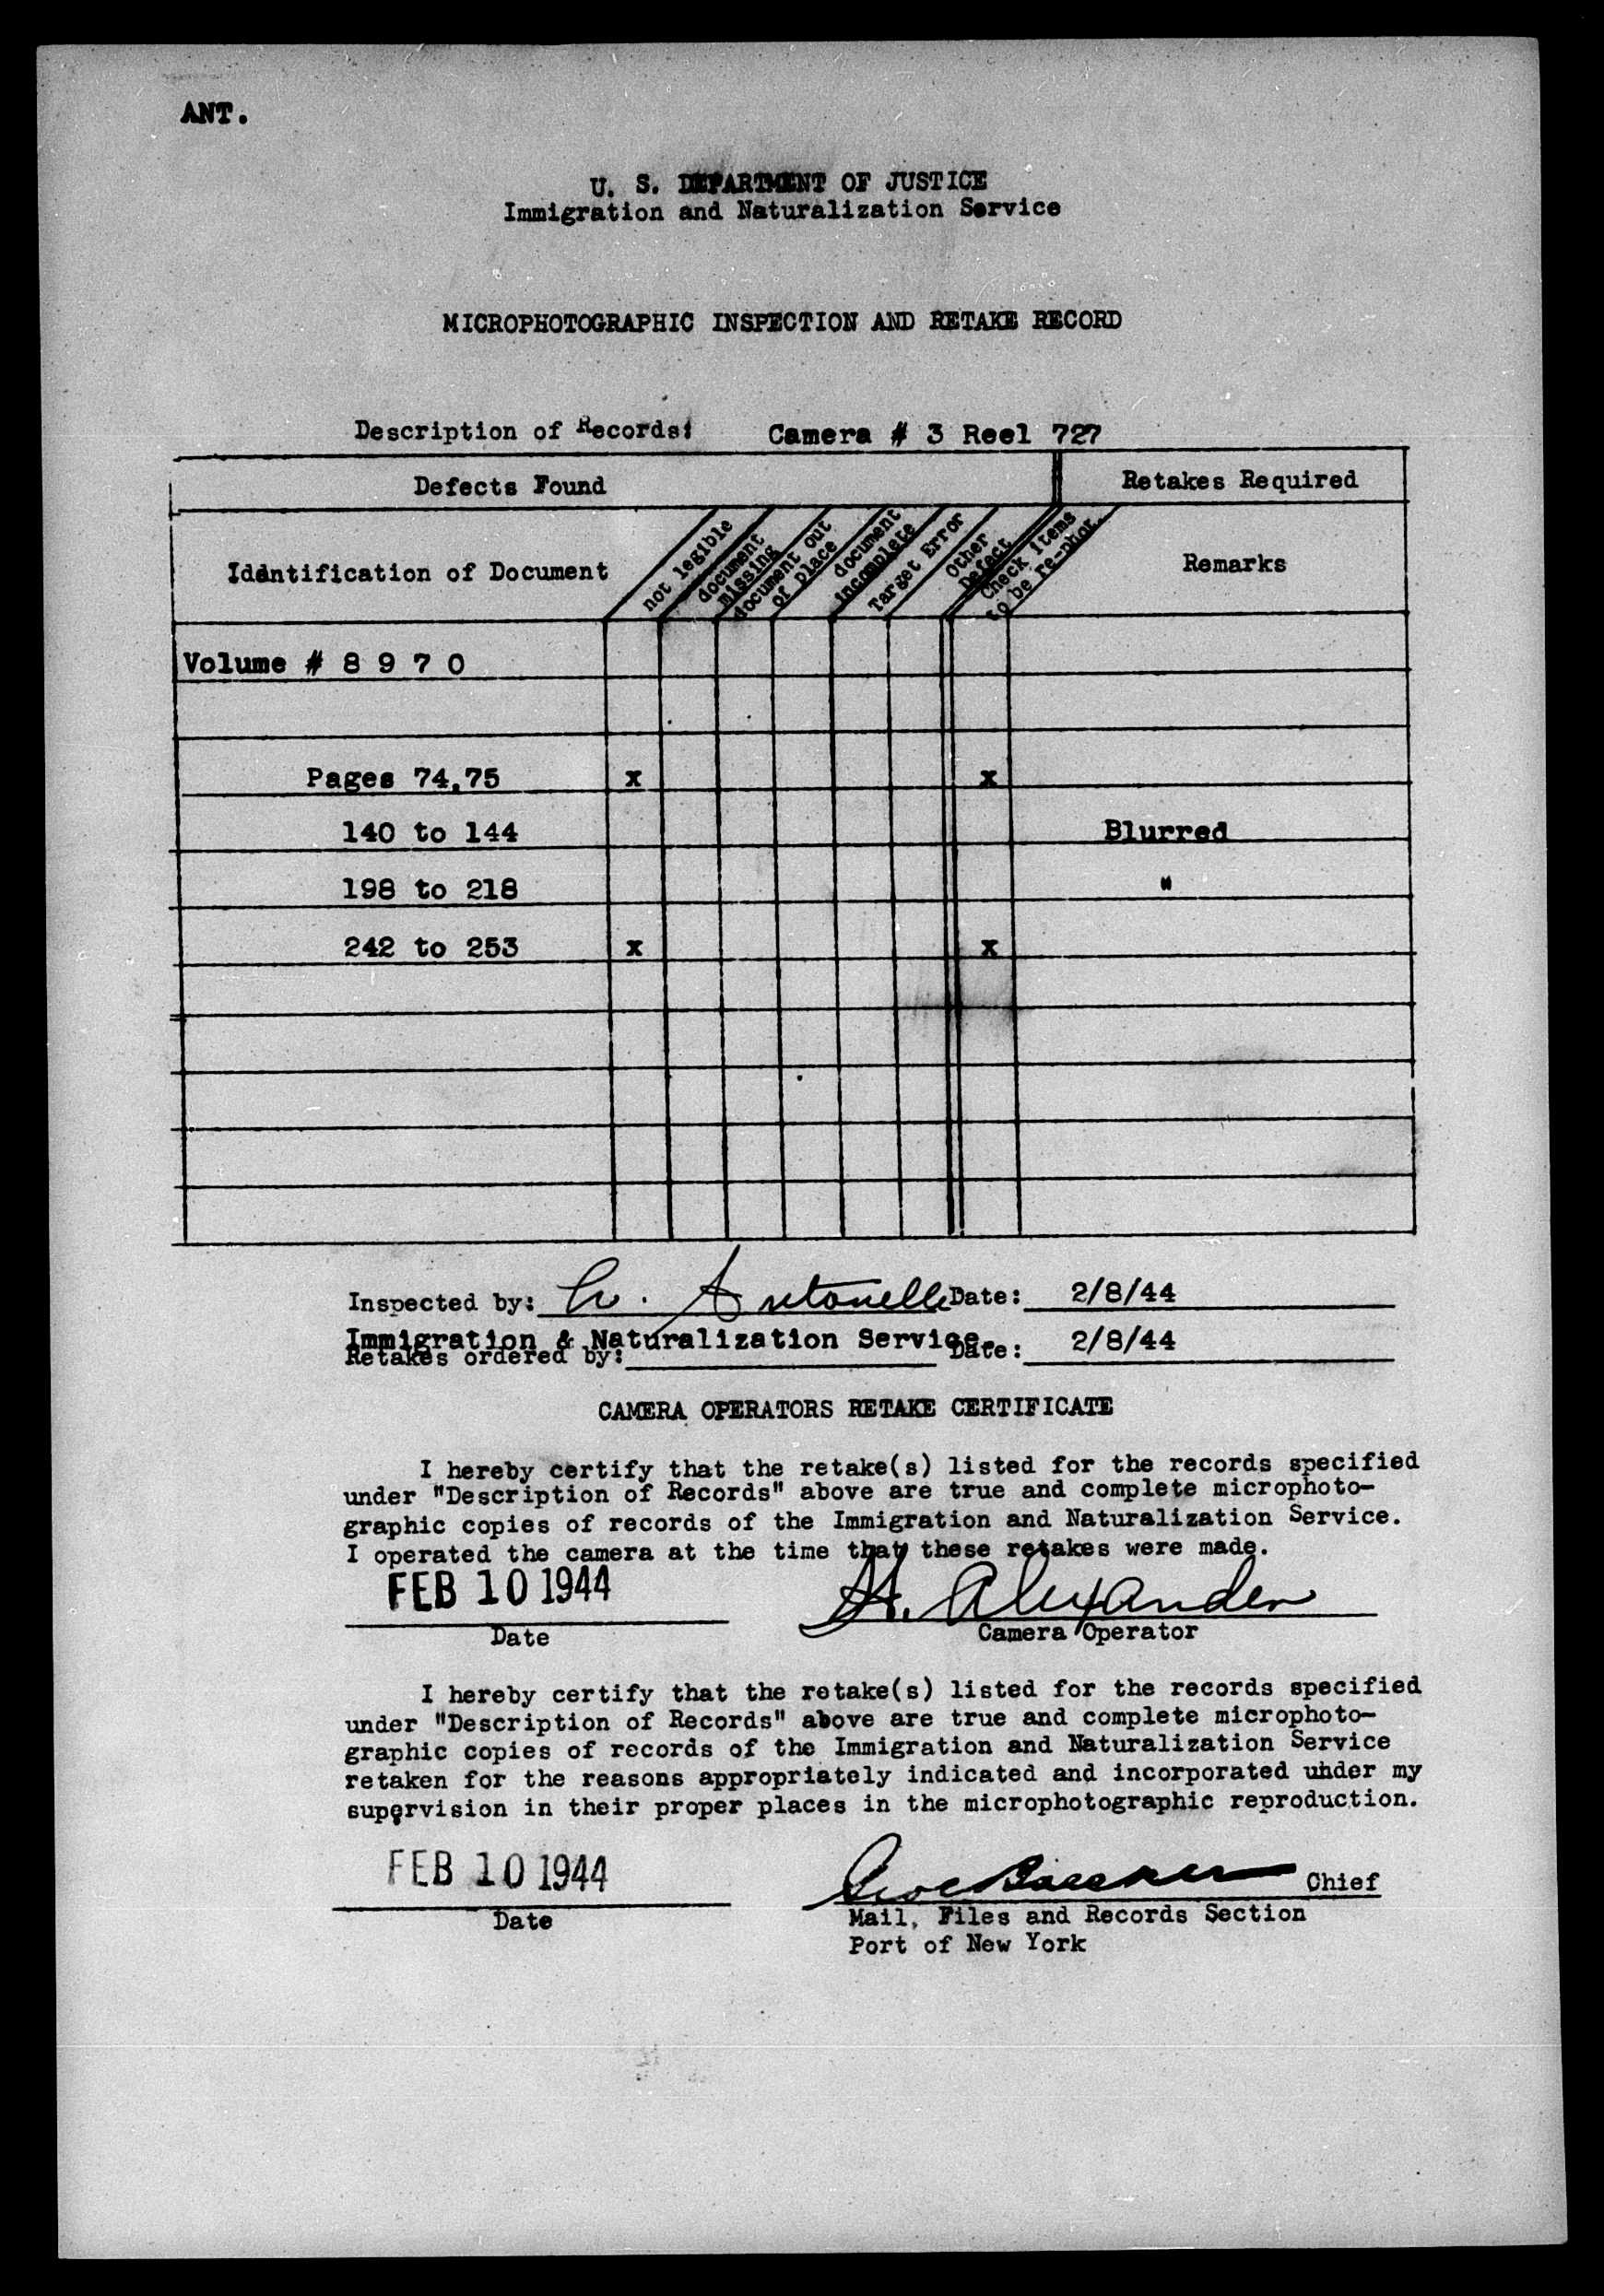 ANT.
U. S. DEPARTMENT OF JUSTICE
Immigration and Naturalization Service
MICROPHOTOGRAPHIC INSPECTION AND RETAKE RECORD
Description of Records: Camera # 3 Reel 727
Defects Found Retakes Required
Identification of Document not legible document missing document out of place document incomplete Target Error Other Defect Check items to be re-phot. Remarks
Volume # 8 9 7 0
Pages 74,75 x x
140 to 144 Blurred
198 to 218 "
242 to 253 x x
Inspected by: Antonelli Date: 2/8/44
Immigration & Naturalization Service.
Retakes ordered by: Date: 2/8/44
CAMERA OPERATORS RETAKE CERTIFICATE
I hereby certify that the retake(s) listed for the records specified
under "Description of Records" above are true and complete microphoto-
graphic copies of records of the Immigration and Naturalization Service.
I operated the camera at the time that these retakes were made.
FEB 10 1944 H. Alexander
Date Camera Operator
I hereby certify that the retake(s) listed for the records specified
under "Description of Records" above are true and complete microphoto-
graphic copies of records of the Immigration and Naturalization Service
retaken for the reasons appropriately indicated and incorporated under my
supervision in their proper places in the microphotographic reproduction.
FEB 10 1944 Chief
Date Mail, Files and Records Section
Port of New York